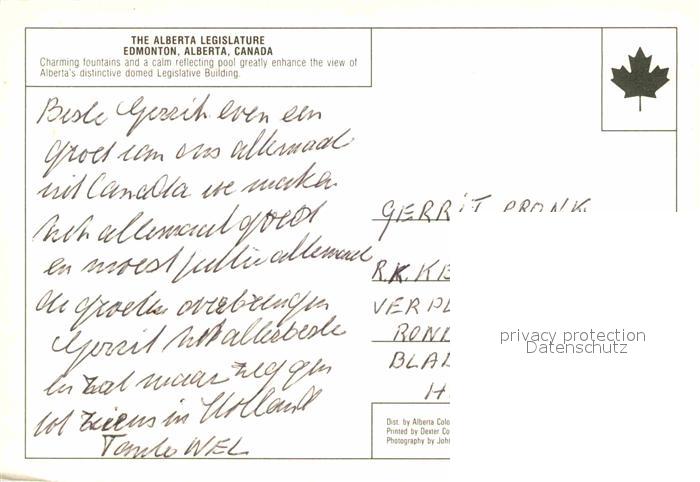 THE ALBERTA LEGISLATURE
EDMONTON, ALBERTA, CANADA
Charming fountains and a calm reflecting pool greatly enhance the view of
Alberta's distinctive domed Legislative Building.
Beste Gerrit even een
groet van ons allemaal
uit Canada we maken
het allemaal goed
en moest jullie allemaal
de groeten overbrengen
Gerrit het allerbeste
en zal maar zeggen
tot ziens in Holland
Tante NEL
GERRIT PRONK
R.K. KE
VERPL
ROND
BLA
H
privacy protection
Datenschutz
Dist. by Alberta Colo
Printed by Dexter Co
Photography by John